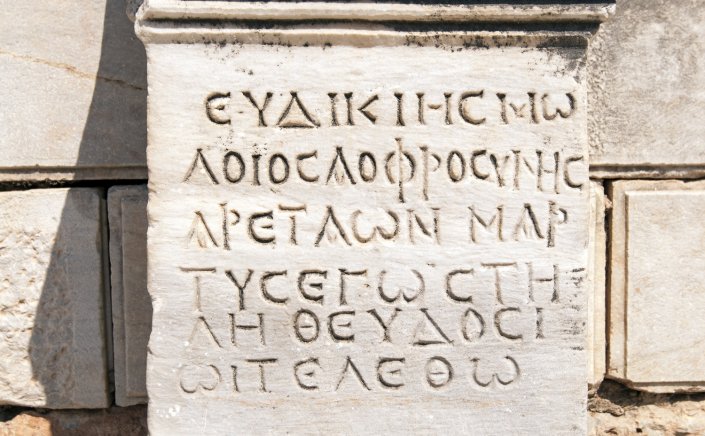 ΕΥΔΙΚΙΗϹΜΩ
ΛΟΙΟϹΑΟΦΡΟϹΥΝΗϹ
ΑΡΕΤΑΩΝ ΜΑΡ
ΤΥϹΕΓΩϹΤΗ
ΛΗΘΕΥΔΟϹΙ
ΩΙΤΕΛΕΘΩ